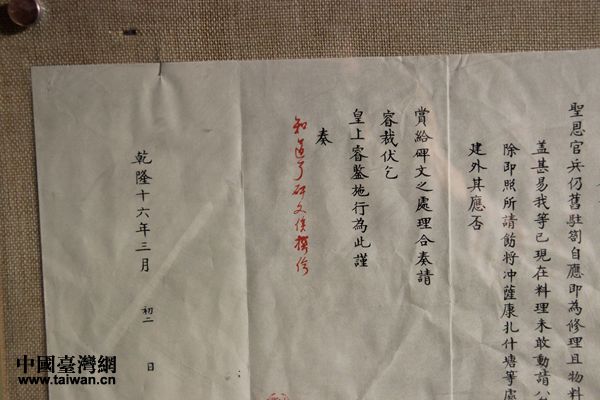 聖恩官兵仍舊駐劄自應即為修理且物料
蓋甚易我等已現在料理未敢動請公
除即照所請飭將冲薩康扎什塘等處
建外其應否
賞給碑文之處理合奏請
容裁伏乞
皇上睿鑒施行為此謹
奏
知道了碑文俟撰給
乾隆十六年三月 初二 日
中國臺灣網
www.taiwan.cn